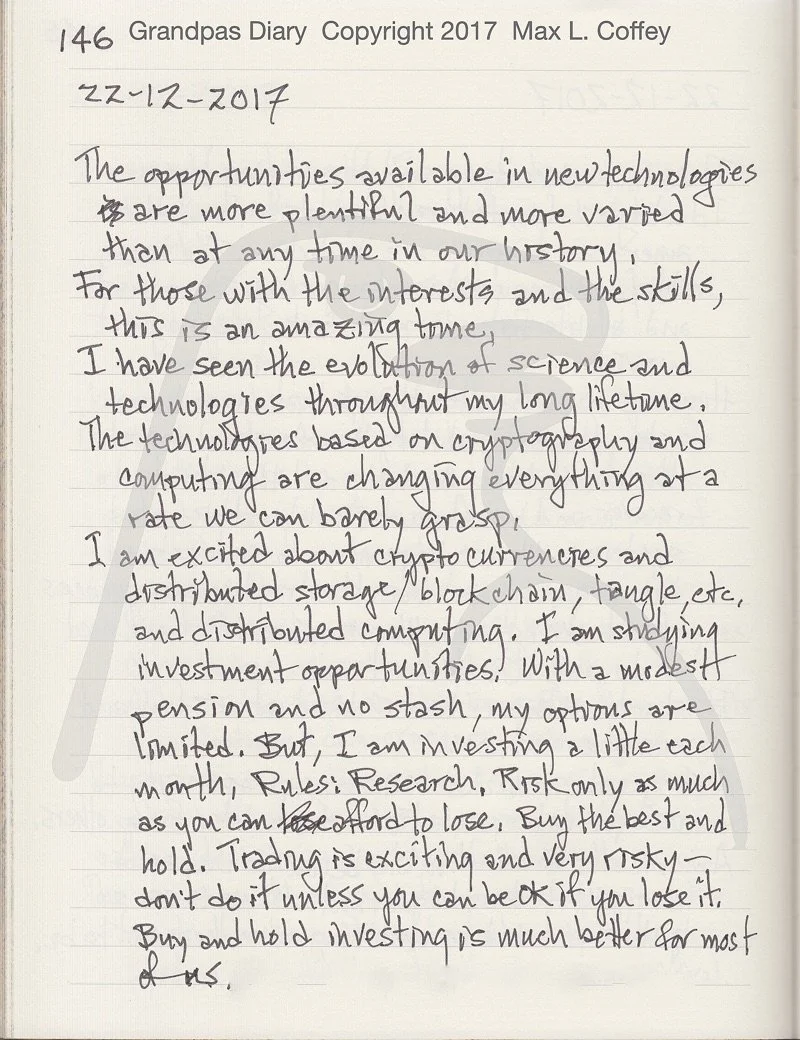 146 Grandpas Diary Copyright 2017 Max L. Coffey
22-12-2017
The opportunities available in new technologies
is are more plentiful and more varied
than at any time in our history.
For those with the interests and the skills,
this is an amazing time.
I have seen the evolution of science and
technologies throughout my long lifetime.
The technologies based on cryptography and
computing are changing everything at a
rate we can barely grasp.
I am excited about cryptocurrencies and
distributed storage/blockchain, tangle, etc.
and distributed computing. I am studying
investment opportunities. With a modest
pension and no stash, my options are
limited. But, I am investing a little each
month. Rules: Research. Risk only as much
as you can lose afford to lose. Buy the best and
hold. Trading is exciting and very risky—
don't do it unless you can be OK if you lose it.
Buy and hold investing is much better for most
of us.